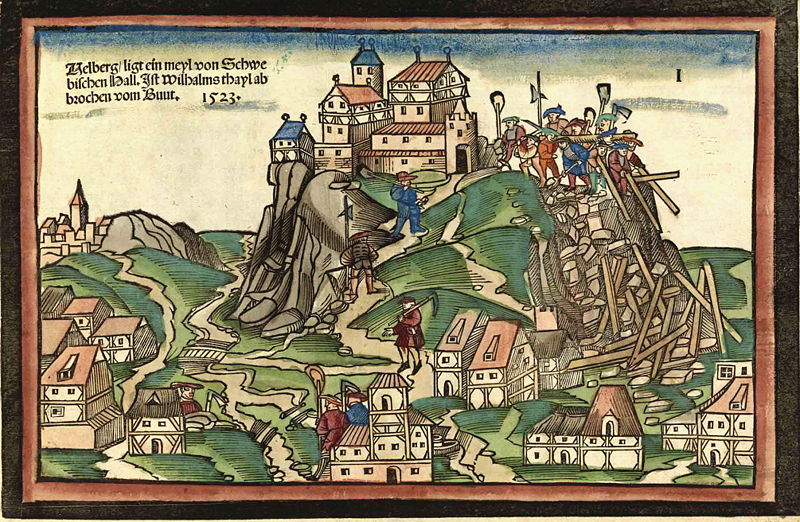 Velberg/ ligt ein meyl von Schwe
bischen Hall. Ist Wilhalms thayl ab
brochen vom Bunt. 1523.
I